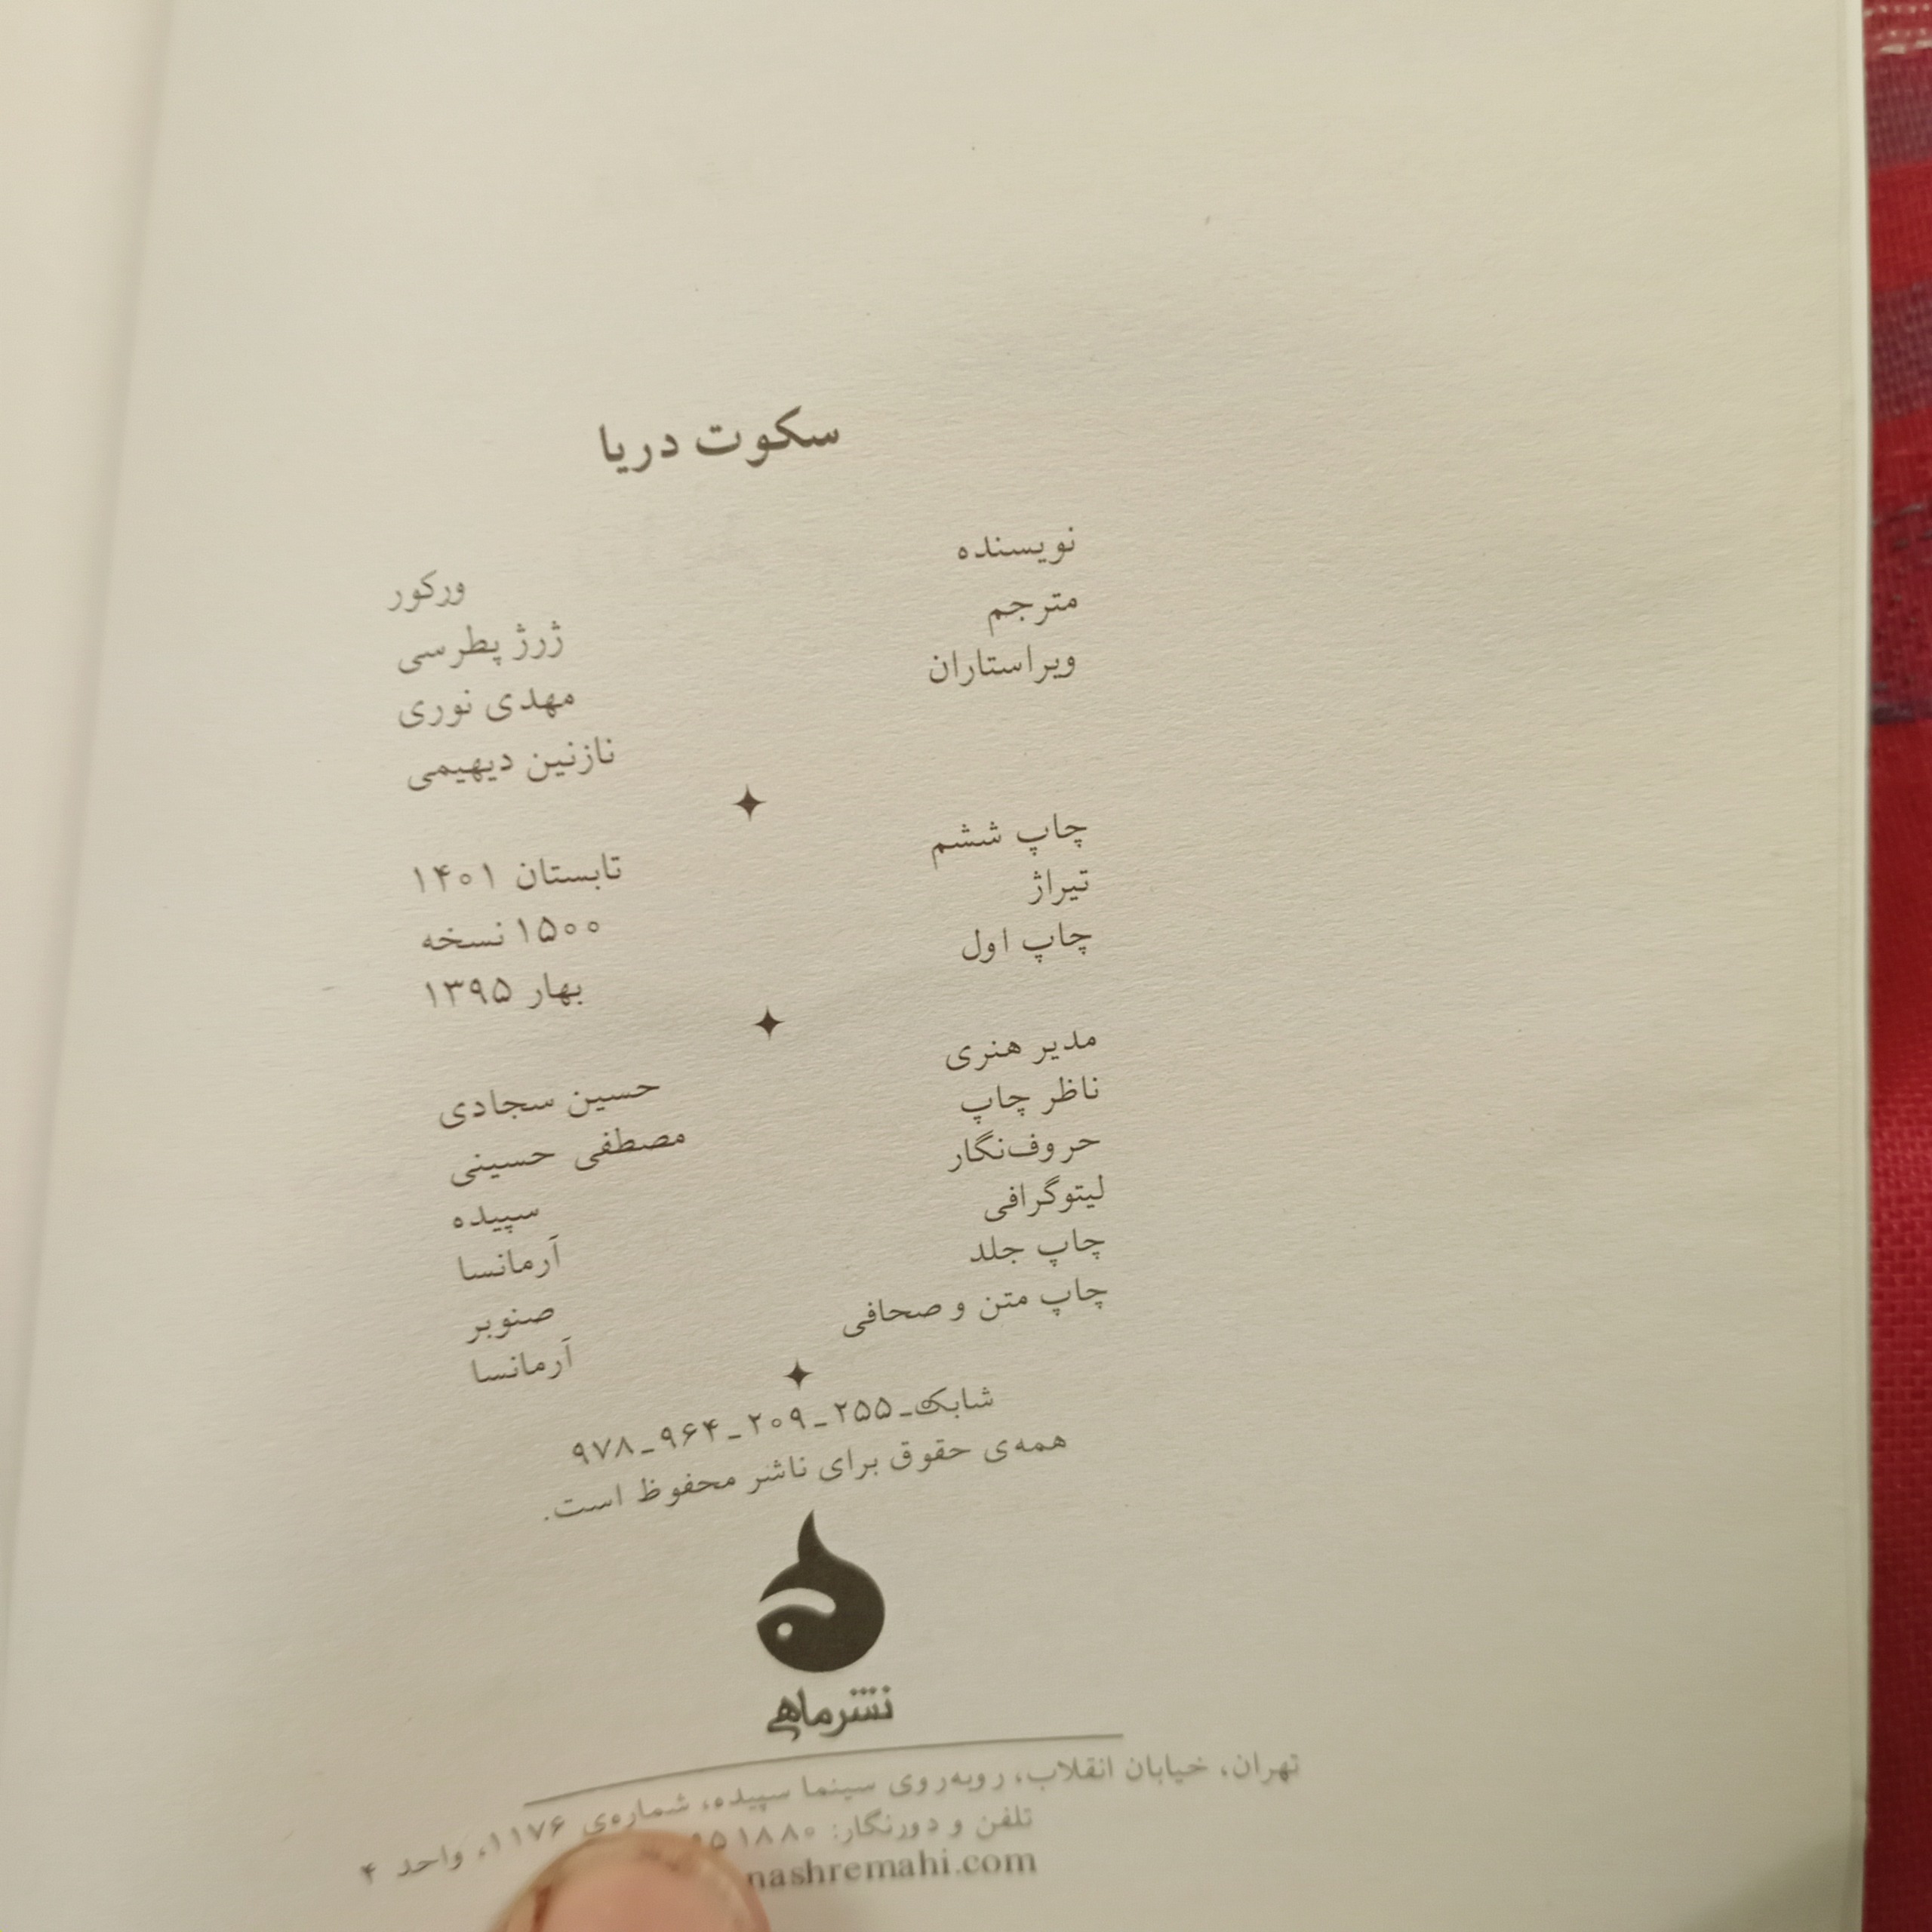 سکوت دریا
نویسنده ورکور
مترجم ژرژ پطرسی
ویراستاران مهدی نوری
نازنین دیهیمی
چاپ ششم تابستان ۱۴۰۱
تیراژ ۱۵۰۰ نسخه
چاپ اول بهار ۱۳۹۵
مدیر هنری حسین سجادی
ناظر چاپ مصطفی حسینی
حروف‌نگار سپیده
لیتوگرافی آرمانسا
چاپ جلد صنوبر
چاپ متن و صحافی آرمانسا
شابک ۹۷۸ـ۹۶۴ـ۲۰۹ـ۲۵۵ـ
همه‌ی حقوق برای ناشر محفوظ است.
نشرماهی
تهران، خیابان انقلاب، روبه‌روی سینما سپیده، شماره‌ی ۱۱۷۶، واحد ۴
تلفن و دورنگار:
nashremahi.com